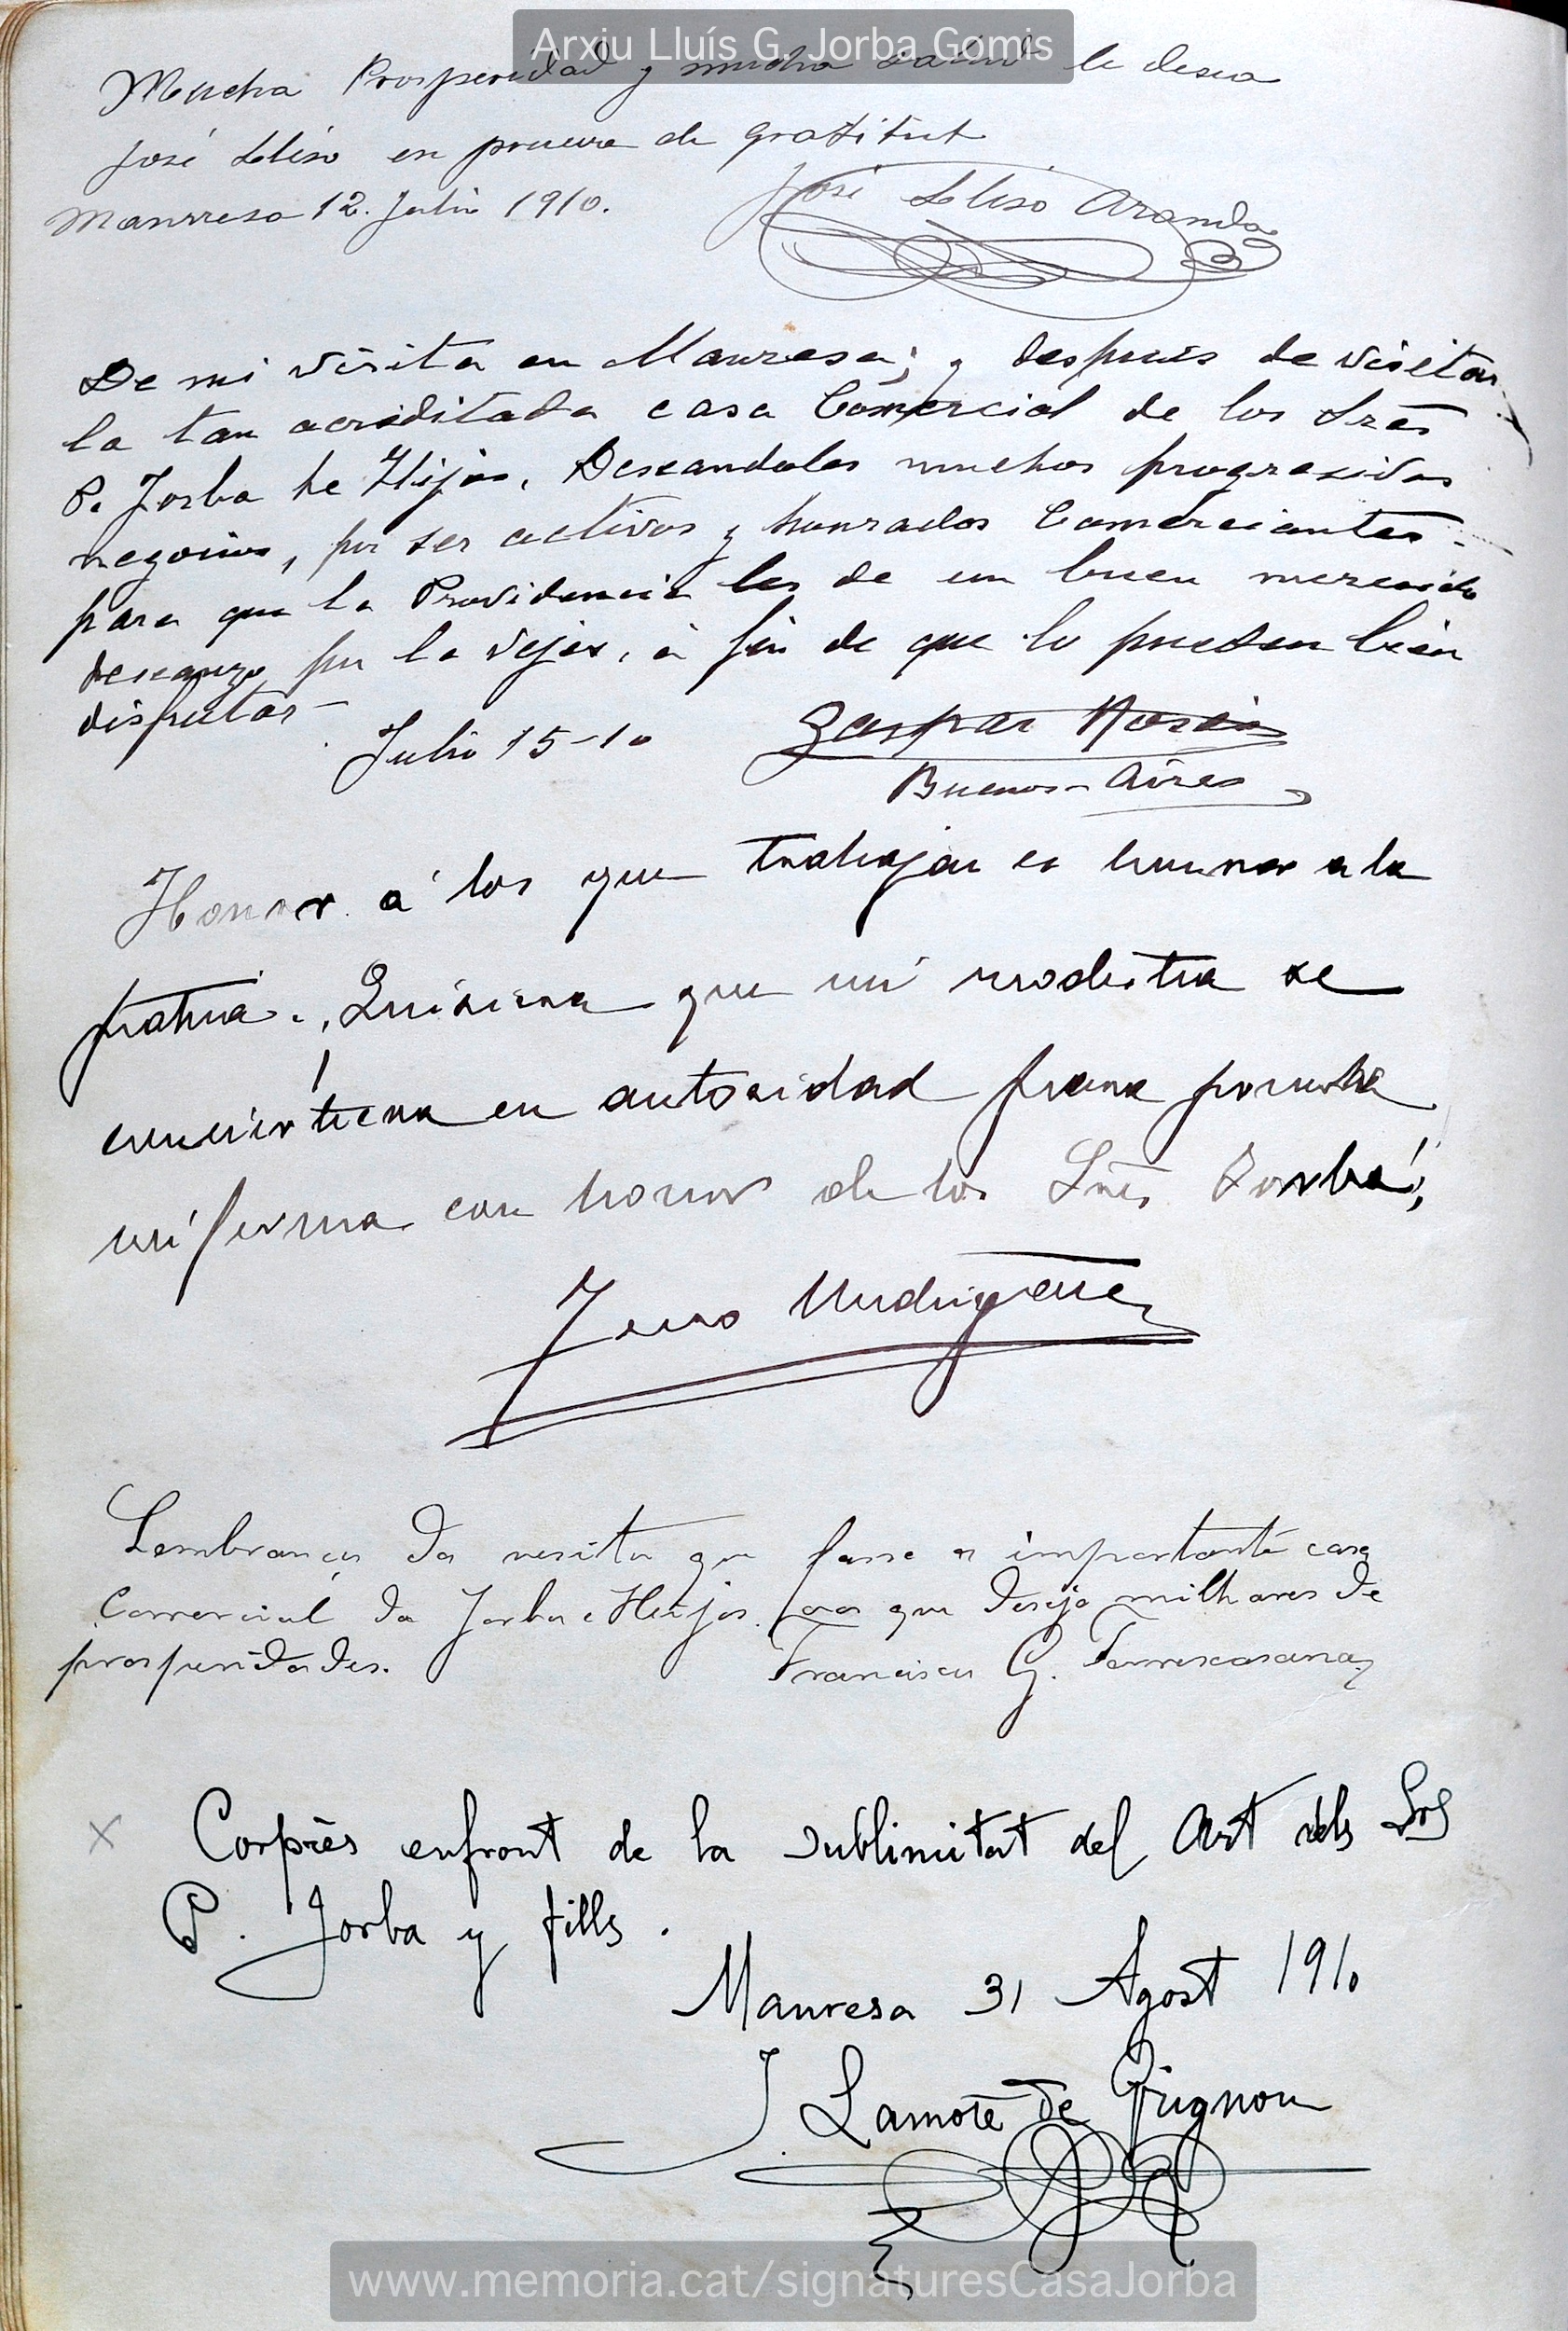 Arxiu Lluís G. Jorba Gomis
Mucha Prosperidad y mucha salud le desea
José Lliso en prueva de gratitut
Manrresa 12. Julio 1910.
José Lliso Aranda
De mi visita en Manresa; y despues de visitar
la tan acreditada casa Comercial de los Sres
P. Jorba he Hijos, Deseandoles muchos progresivos
negocios, por ser activos y honrados Comerciantes
para que la Providencia les de un buen merecido
descanzo por la vejes, á fin de que lo puedan bien
disfrutar
Julio 15-10
Gaspar
Buenos-Aires
Honor á los que trabajan es honrar a la
patria. Quisiera que mi modestia se
convirtiera en autoridad para ponerla
mi firma con honor de los Sres Jorba
Lembrança da visita que fasse a importante casa
Comercial da Jorba e Hijos. que deseja milhares de
prosperidades.
Francisco G. Torrescasana
Corprès enfront de la sublimitat del Art dels Srs
P. Jorba y fills.
Manresa 31 Agost 1910
J. Lamote de Grignon
www.memoria.cat/signaturesCasaJorba